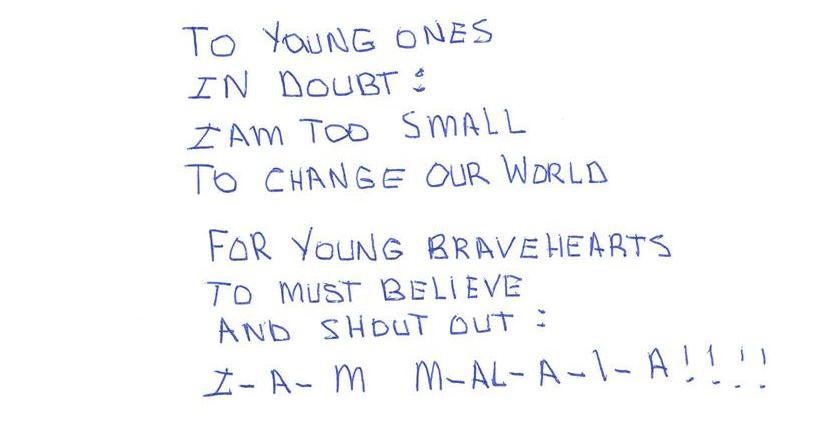 TO YOUNG ONES
IN DOUBT :
I AM TOO SMALL
TO CHANGE OUR WORLD
FOR YOUNG BRAVEHEARTS
TO MUST BELIEVE
AND SHOUT OUT :
I-A-M M-AL-A-I-A!!!!